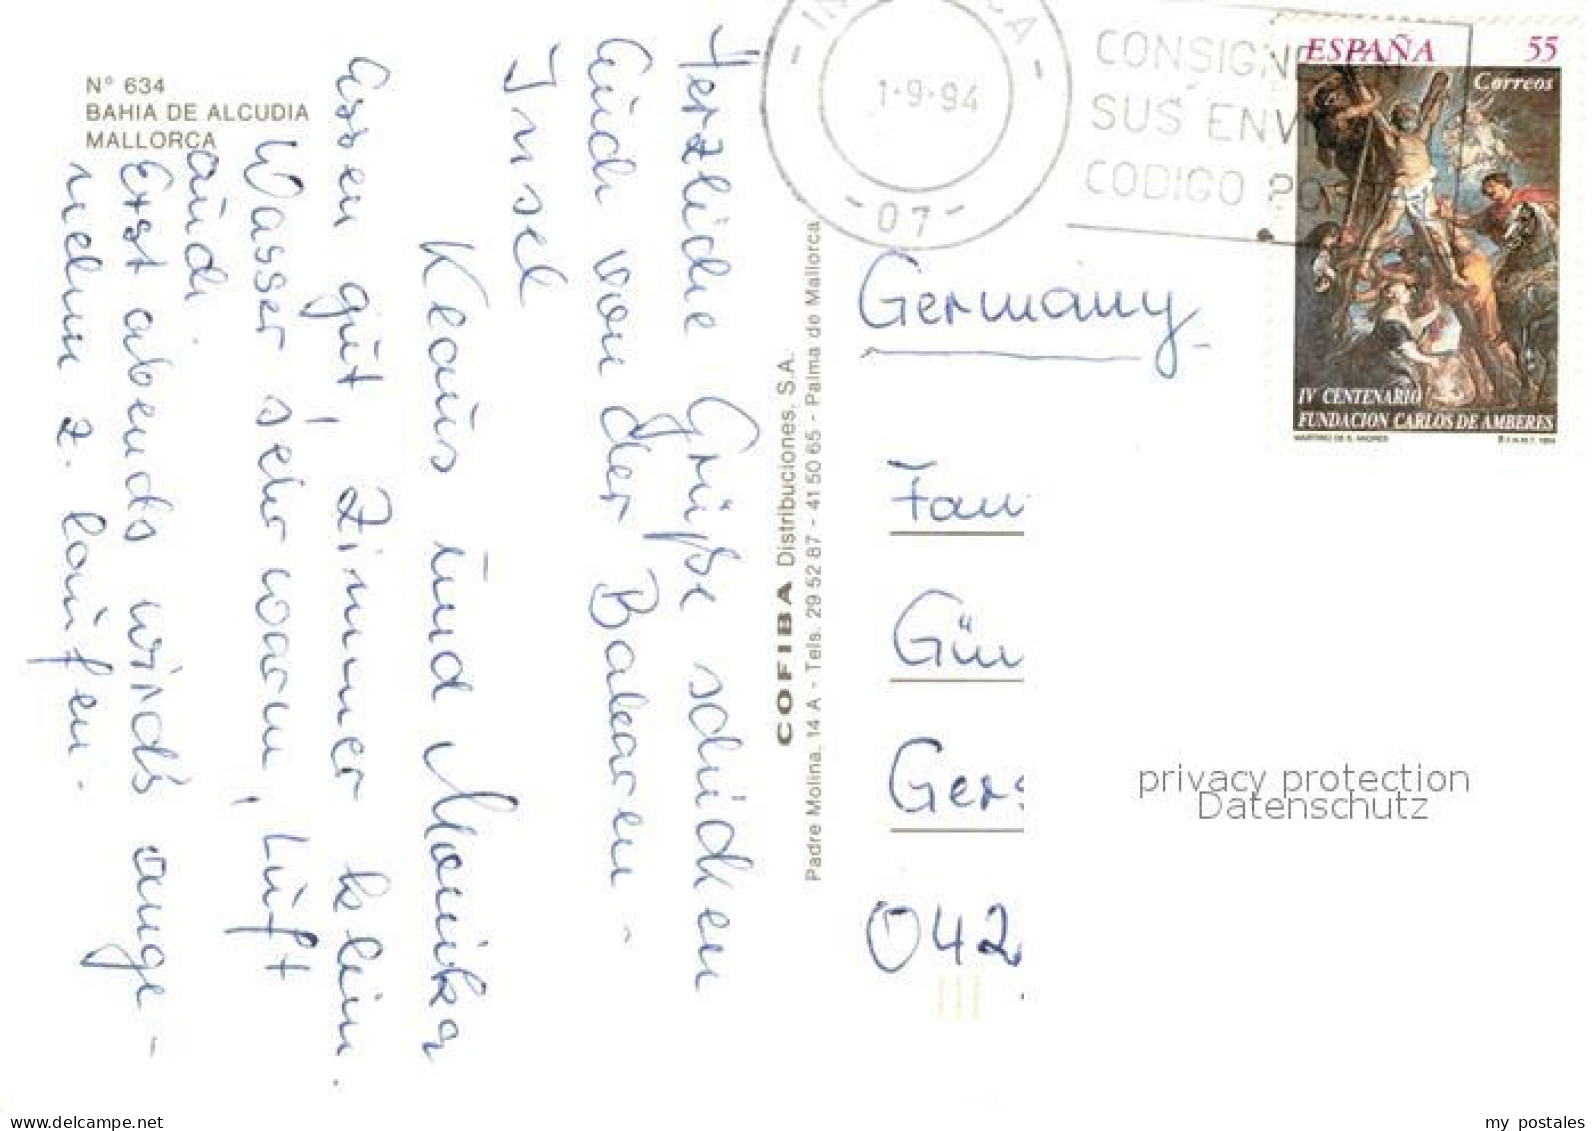 Nº 634
BAHIA DE ALCUDIA
MALLORCA
Herzliche Grüße schicken
Euch von der Balearen-
Insel
Klaus und Monika
Essen gut, Zimmer klein.
Wasser sehr warm, Luft
auch.
Erst abends wird's ange-
nehm z. laufen.
COFIBA Distribuciones, S.A.
Padre Molina, 14 A - Tels. 29 52 87 - 41 50 65 - Palma de Mallorca
1-9-94
-07-
CONSIGNE
SUS ENVI
CODIGO PO
ESPAÑA 55
Correos
IV CENTENARIO
FUNDACION CARLOS DE AMBERES
MARTIRIO DE S. ANDRES
F.N.M.T. 1994
Germany
Fam
Gün
Gers
042
privacy protection
Datenschutz
my postales